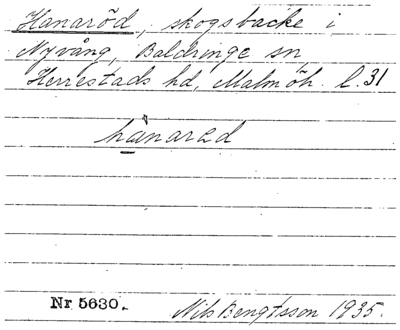 Hanaröd, skogsbacke i
Nyvång, Baldringe sn,
Herrestads hd, Malmöh. l. 31
hánarꞫd
Nr 5630. Nils Bengtsson 1935.